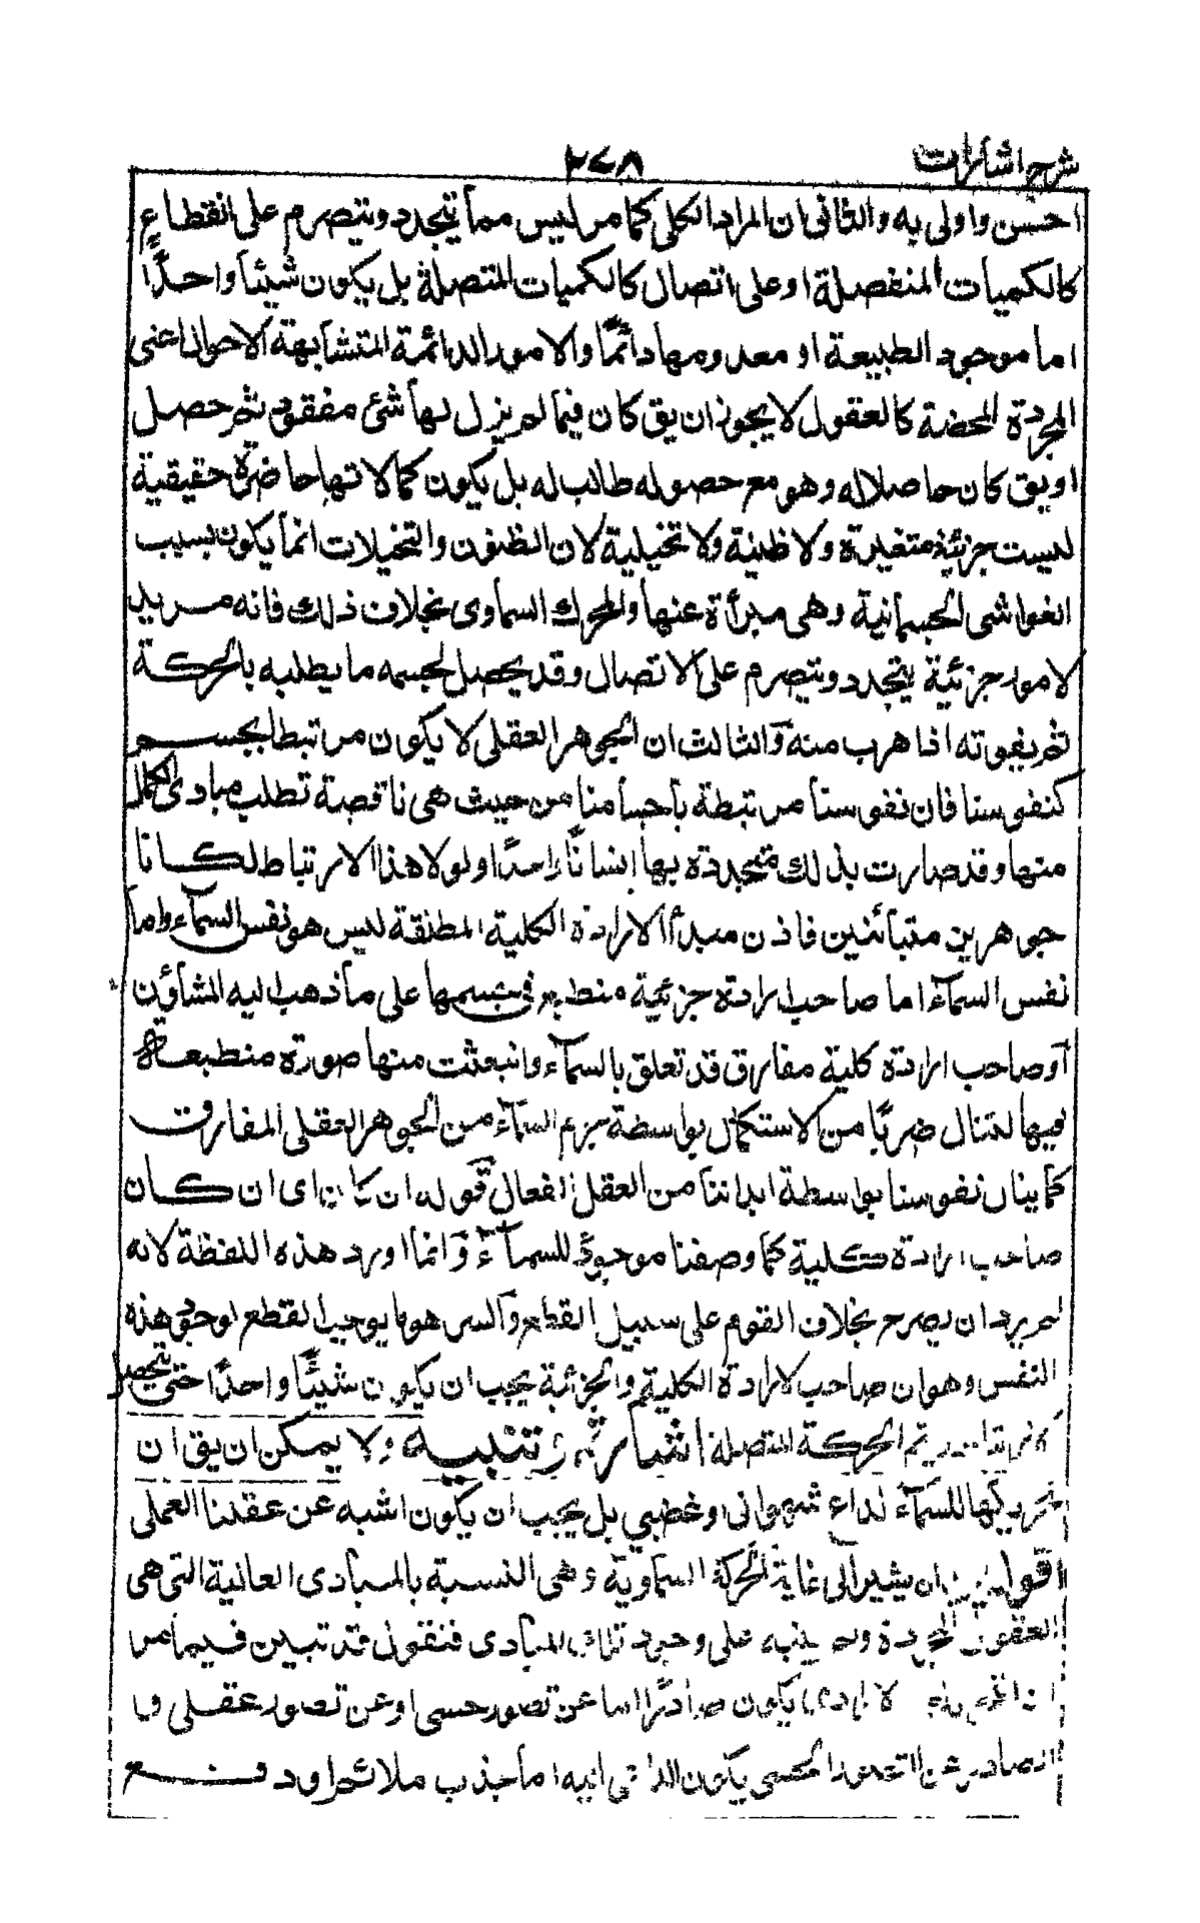 شرح اشارات
٢٧٨
احسن واولى به والثانى ان المراد الكلى كما مر ليس مما يتجدد ويتصرم على انقطاع
كالكميات المنفصلة او على اتصال كالكميات المتصلة بل يكون شيئا واحدًا
اما موجود الطبيعة او معدومها دائمًا والامور الدائمة المتشابهة الاحوال اعنى
المجردة المحضة كالعقول لا يجوز ان يق كان فيما لم يزل لها شئ مفقود ثم حصل
او يق كان حاصلا له وهو مع حصوله طالب له بل يكون كمالاتها حاضرة حقيقية
ليست جزئية متغيرة ولا ظنية ولا تخيلية لان الظنون والتخيلات انما يكون بسبب
الغواشى الجسمانية وهى مبرأة عنها والمحرك السماوى بخلاف ذلك فانه مريد
لامور جزئية يتجدد ويتصرم على الاتصال وقد يحصل لجسمه ما يطلبه بالحركة
ثم يفوته اذا هرب منه والثالث ان الجوهر العقلى لا يكون مرتبطا بجسم
كنفوسنا فان نفوسنا مرتبطة باجسامنا من حيث هى ناقصة تطلب مبادى الكمال
منها وقد صارت بذلك متحددة بها انسانًا واحدًا ولولا هذا الارتباط لكانا
جوهرين متبائنين فاذن مبدأ الارادة الكلية المطلقة ليس هو نفس السماء واما
نفس السماء اما صاحب ارادة جزئية منطبع فى جسمها على ما ذهب اليه المشاؤن
او صاحب ارادة كلية مفارق قد تعلق بالسماء وانبعثت منها صورة منطبعة
فيها لتنال ضربًا من الاستكمال بواسطة جرم السماء من الجوهر العقلى المفارق
كما ينال نفوسنا بواسطة ابداننا من العقل الفعال قوله ان كان اى ان كان
صاحب ارادة كلية كما وصفنا موجودًا للسماء وانما اورد هذه اللفظة لانه
لم يرد ان يصرح بخلاف القوم على سبيل القطع والسر هو ما يوجب القطع لوجود هذه
النفس وهو ان صاحب الارادة الكلية والجزئية يجب ان يكون شيئًا واحدًا حتى يتحصل
الحركة المتصلة اشارة وتنبيه ولا يمكن ان يق ان
تحريكها للسماء لداع شهوانى او غضبي بل يجب ان يكون اشبه عن عقلنا العملى
اقول يريد ان يشير الى غاية الحركة السماوية وهى النسبة بالمبادى العالية التى هى
العقول المجردة وينبه على وجود تلك المبادى فنقول قد تبين فيما مر
ان الارادى يكون صادرًا اما عن تصور حسى او عن تصور عقلى و
الصادر عن التصور الحسى يكون الداعى اليه اما جذب ملائم او دفع